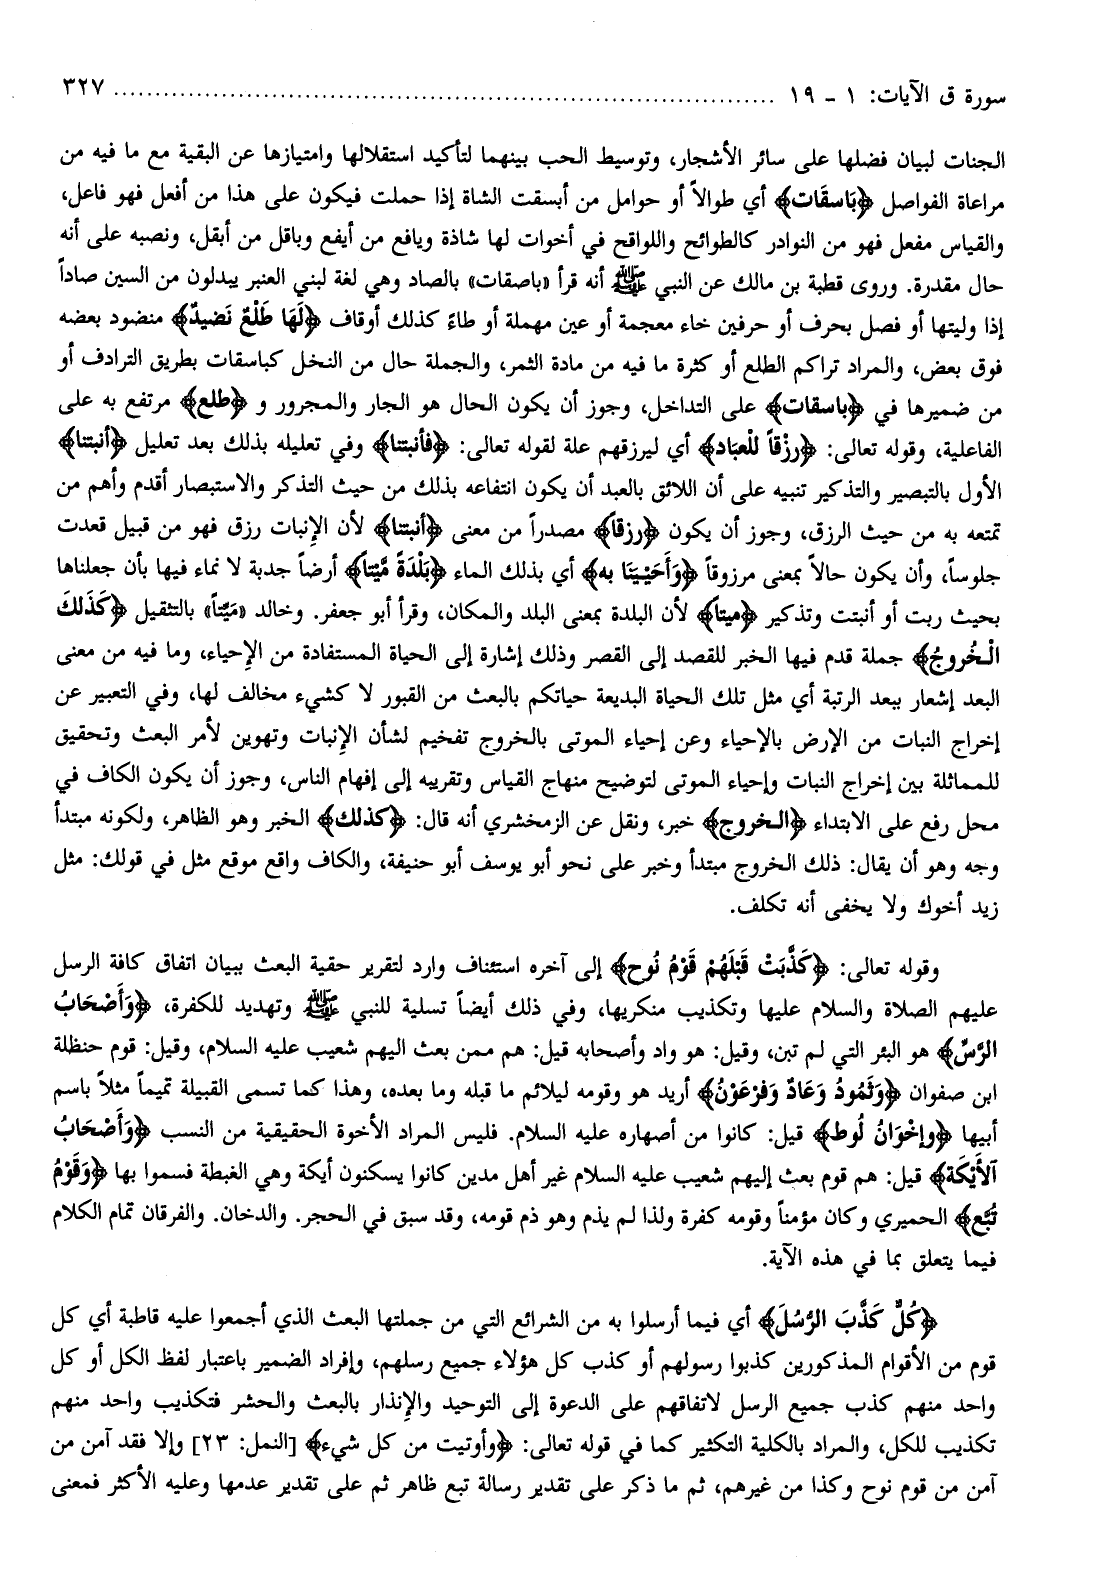 سورة ق الآيات: ١ - ١٩ ........................................................................... ٣٢٧
الجنات لبيان فضلها على سائر الأشجار، وتوسيط الحب بينهما لتأكيد استقلالها وامتيازها عن البقية مع ما فيه من
مراعاة الفواصل ﴿بَاسقَات﴾ أي طوالاً أو حوامل من أبسقت الشاة إذا حملت فيكون على هذا من أفعل فهو فاعل،
والقياس مفعل فهو من النوادر كالطوائح واللواقح في أخوات لها شاذة ويافع من أيفع وباقل من أبقل، ونصبه على أنه
حال مقدرة. وروى قطبة بن مالك عن النبي ﷺ أنه قرأ «باصقات» بالصاد وهي لغة لبني العنبر يبدلون من السين صاداً
إذا وليتها أو فصل بحرف أو حرفين خاء معجمة أو عين مهملة أو طاءً كذلك أوقاف ﴿لَهَا طَلْعٌ نَضيدٌ﴾ منضود بعضه
فوق بعض، والمراد تراكم الطلع أو كثرة ما فيه من مادة الثمر، والجملة حال من النخل كباسقات بطريق الترادف أو
من ضميرها في ﴿باسقات﴾ على التداخل، وجوز أن يكون الحال هو الجار والمجرور و ﴿طلع﴾ مرتفع به على
الفاعلية، وقوله تعالى: ﴿رزْقاً للْعبَاد﴾ أي ليرزقهم علة لقوله تعالى: ﴿فأنبتنا﴾ وفي تعليله بذلك بعد تعليل ﴿أنبتنا﴾
الأول بالتبصير والتذكير تنبيه على أن اللائق بالعبد أن يكون انتفاعه بذلك من حيث التذكر والاستبصار أقدم وأهم من
تمتعه به من حيث الرزق، وجوز أن يكون ﴿رزقاً﴾ مصدراً من معنى ﴿أنبتنا﴾ لأن الإنبات رزق فهو من قبيل قعدت
جلوساً، وأن يكون حالاً بمعنى مرزوقاً ﴿وَأَحْيَيْنَا به﴾ أي بذلك الماء ﴿بَلْدَةً مَّيْتاً﴾ أرضاً جدبة لا نماء فيها بأن جعلناها
بحيث ربت أو أنبتت وتذكير ﴿ميتاً﴾ لأن البلدة بمعنى البلد والمكان، وقرأ أبو جعفر. وخالد «مَيِّتاً» بالتثقيل ﴿كَذَلكَ
الْخُروجُ﴾ جملة قدم فيها الخبر للقصد إلى القصر وذلك إشارة إلى الحياة المستفادة من الإحياء، وما فيه من معنى
البعد إشعار ببعد الرتبة أي مثل تلك الحياة البديعة حياتكم بالبعث من القبور لا كشيء مخالف لها، وفي التعبير عن
إخراج النبات من الإرض بالإحياء وعن إحياء الموتى بالخروج تفخيم لشأن الإنبات وتهوين لأمر البعث وتحقيق
للمماثلة بين إخراج النبات وإحياء الموتى لتوضيح منهاج القياس وتقريبه إلى إفهام الناس، وجوز أن يكون الكاف في
محل رفع على الابتداء ﴿الخروج﴾ خبر، ونقل عن الزمخشري أنه قال: ﴿كذلك﴾ الخبر وهو الظاهر، ولكونه مبتدأ
وجه وهو أن يقال: ذلك الخروج مبتدأ وخبر على نحو أبو يوسف أبو حنيفة، والكاف واقع موقع مثل في قولك: مثل
زيد أخوك ولا يخفى أنه تكلف.
وقوله تعالى: ﴿كَذَّبَتْ قَبْلَهُمْ قَوْمُ نُوح﴾ إلى آخره استئناف وارد لتقرير حقية البعث ببيان اتفاق كافة الرسل
عليهم الصلاة والسلام عليها وتكذيب منكريها، وفي ذلك أيضاً تسلية للنبي ﷺ وتهديد للكفرة، ﴿وَأَصْحَابُ
الرَّسِّ﴾ هو البئر التي لم تبن، وقيل: هو واد وأصحابه قيل: هم ممن بعث اليهم شعيب عليه السلام، وقيل: قوم حنظلة
ابن صفوان ﴿وَثَمُودُ وَعَادٌ وَفرْعَوْنُ﴾ أريد هو وقومه ليلائم ما قبله وما بعده، وهذا كما تسمى القبيلة تميماً مثلاً باسم
أبيها ﴿وإخْوَانُ لُوط﴾ قيل: كانوا من أصهاره عليه السلام. فليس المراد الأخوة الحقيقية من النسب ﴿وَأَصْحَابُ
الأَيْكَة﴾ قيل: هم قوم بعث إليهم شعيب عليه السلام غير أهل مدين كانوا يسكنون أيكة وهي الغبطة فسموا بها ﴿وَقَوْمُ
تُبَّع﴾ الحميري وكان مؤمناً وقومه كفرة ولذا لم يذم وهو ذم قومه، وقد سبق في الحجر. والدخان. والفرقان تمام الكلام
فيما يتعلق بما في هذه الآية.
﴿كُلٌّ كَذَّبَ الرُّسُلَ﴾ أي فيما أرسلوا به من الشرائع التي من جملتها البعث الذي أجمعوا عليه قاطبة أي كل
قوم من الأقوام المذكورين كذبوا رسولهم أو كذب كل هؤلاء جميع رسلهم، وإفراد الضمير باعتبار لفظ الكل أو كل
واحد منهم كذب جميع الرسل لاتفاقهم على الدعوة إلى التوحيد والإنذار بالبعث والحشر فتكذيب واحد منهم
تكذيب للكل، والمراد بالكلية التكثير كما في قوله تعالى: ﴿وأوتيت من كل شيء﴾ [النمل: ٢٣] وإلا فقد آمن من
آمن من قوم نوح وكذا من غيرهم، ثم ما ذكر على تقدير رسالة تبع ظاهر ثم على تقدير عدمها وعليه الأكثر فمعنى